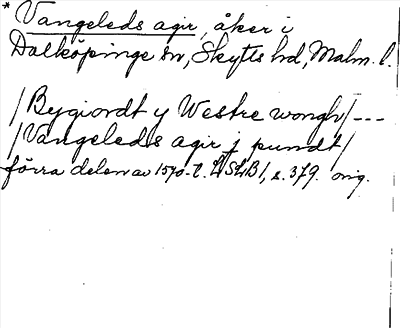 * Vangeleds agir, åker i
Dalköpinge sn, Skytts hd, Malm. l.
/Bygiordt y Westre wongh/ ---
/Vangeleds agir j pundt/
förra delen av 1570-t. LSLB1, s. 379. orig.